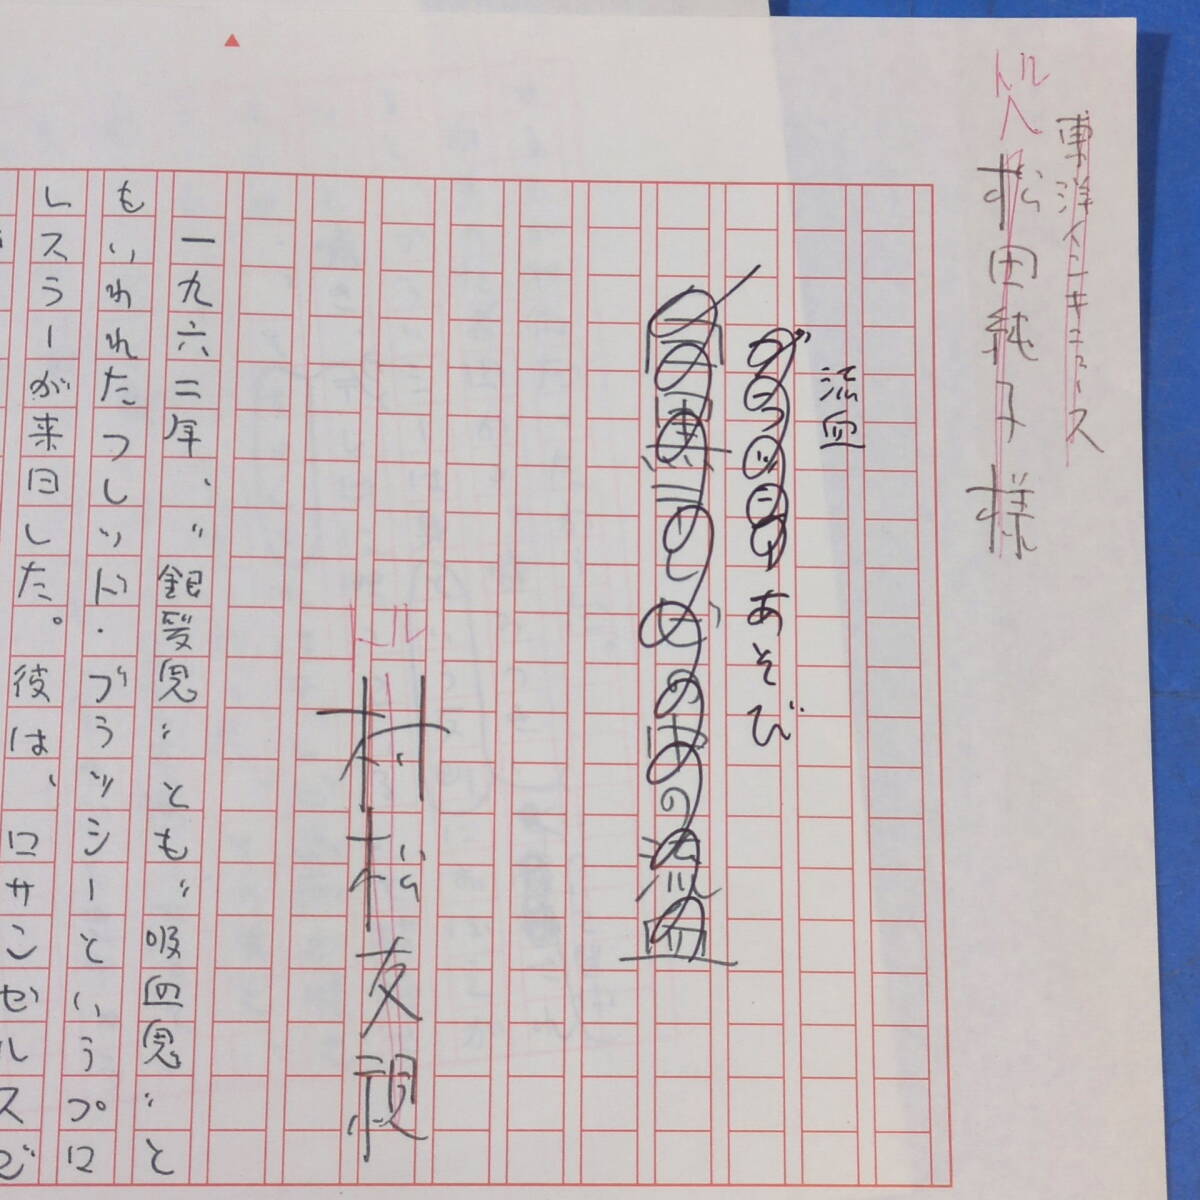 東洋インキニュース
トル
松田純子様
流血
あそび
トル
村松友視
一九六二年、〝銀髪鬼〟とも〝吸血鬼〟と
もいわれたフレッド・ブラッシーというプロ
レスラーが来日した。彼は、ロサンゼルスで